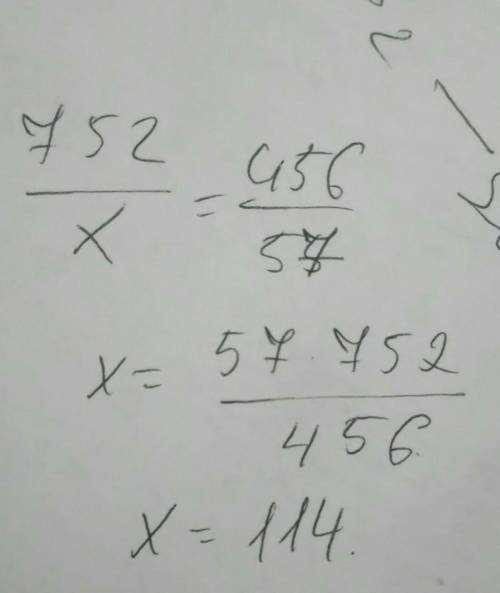 752
x
=
456
57
x = 57 · 752
456
x = 114.